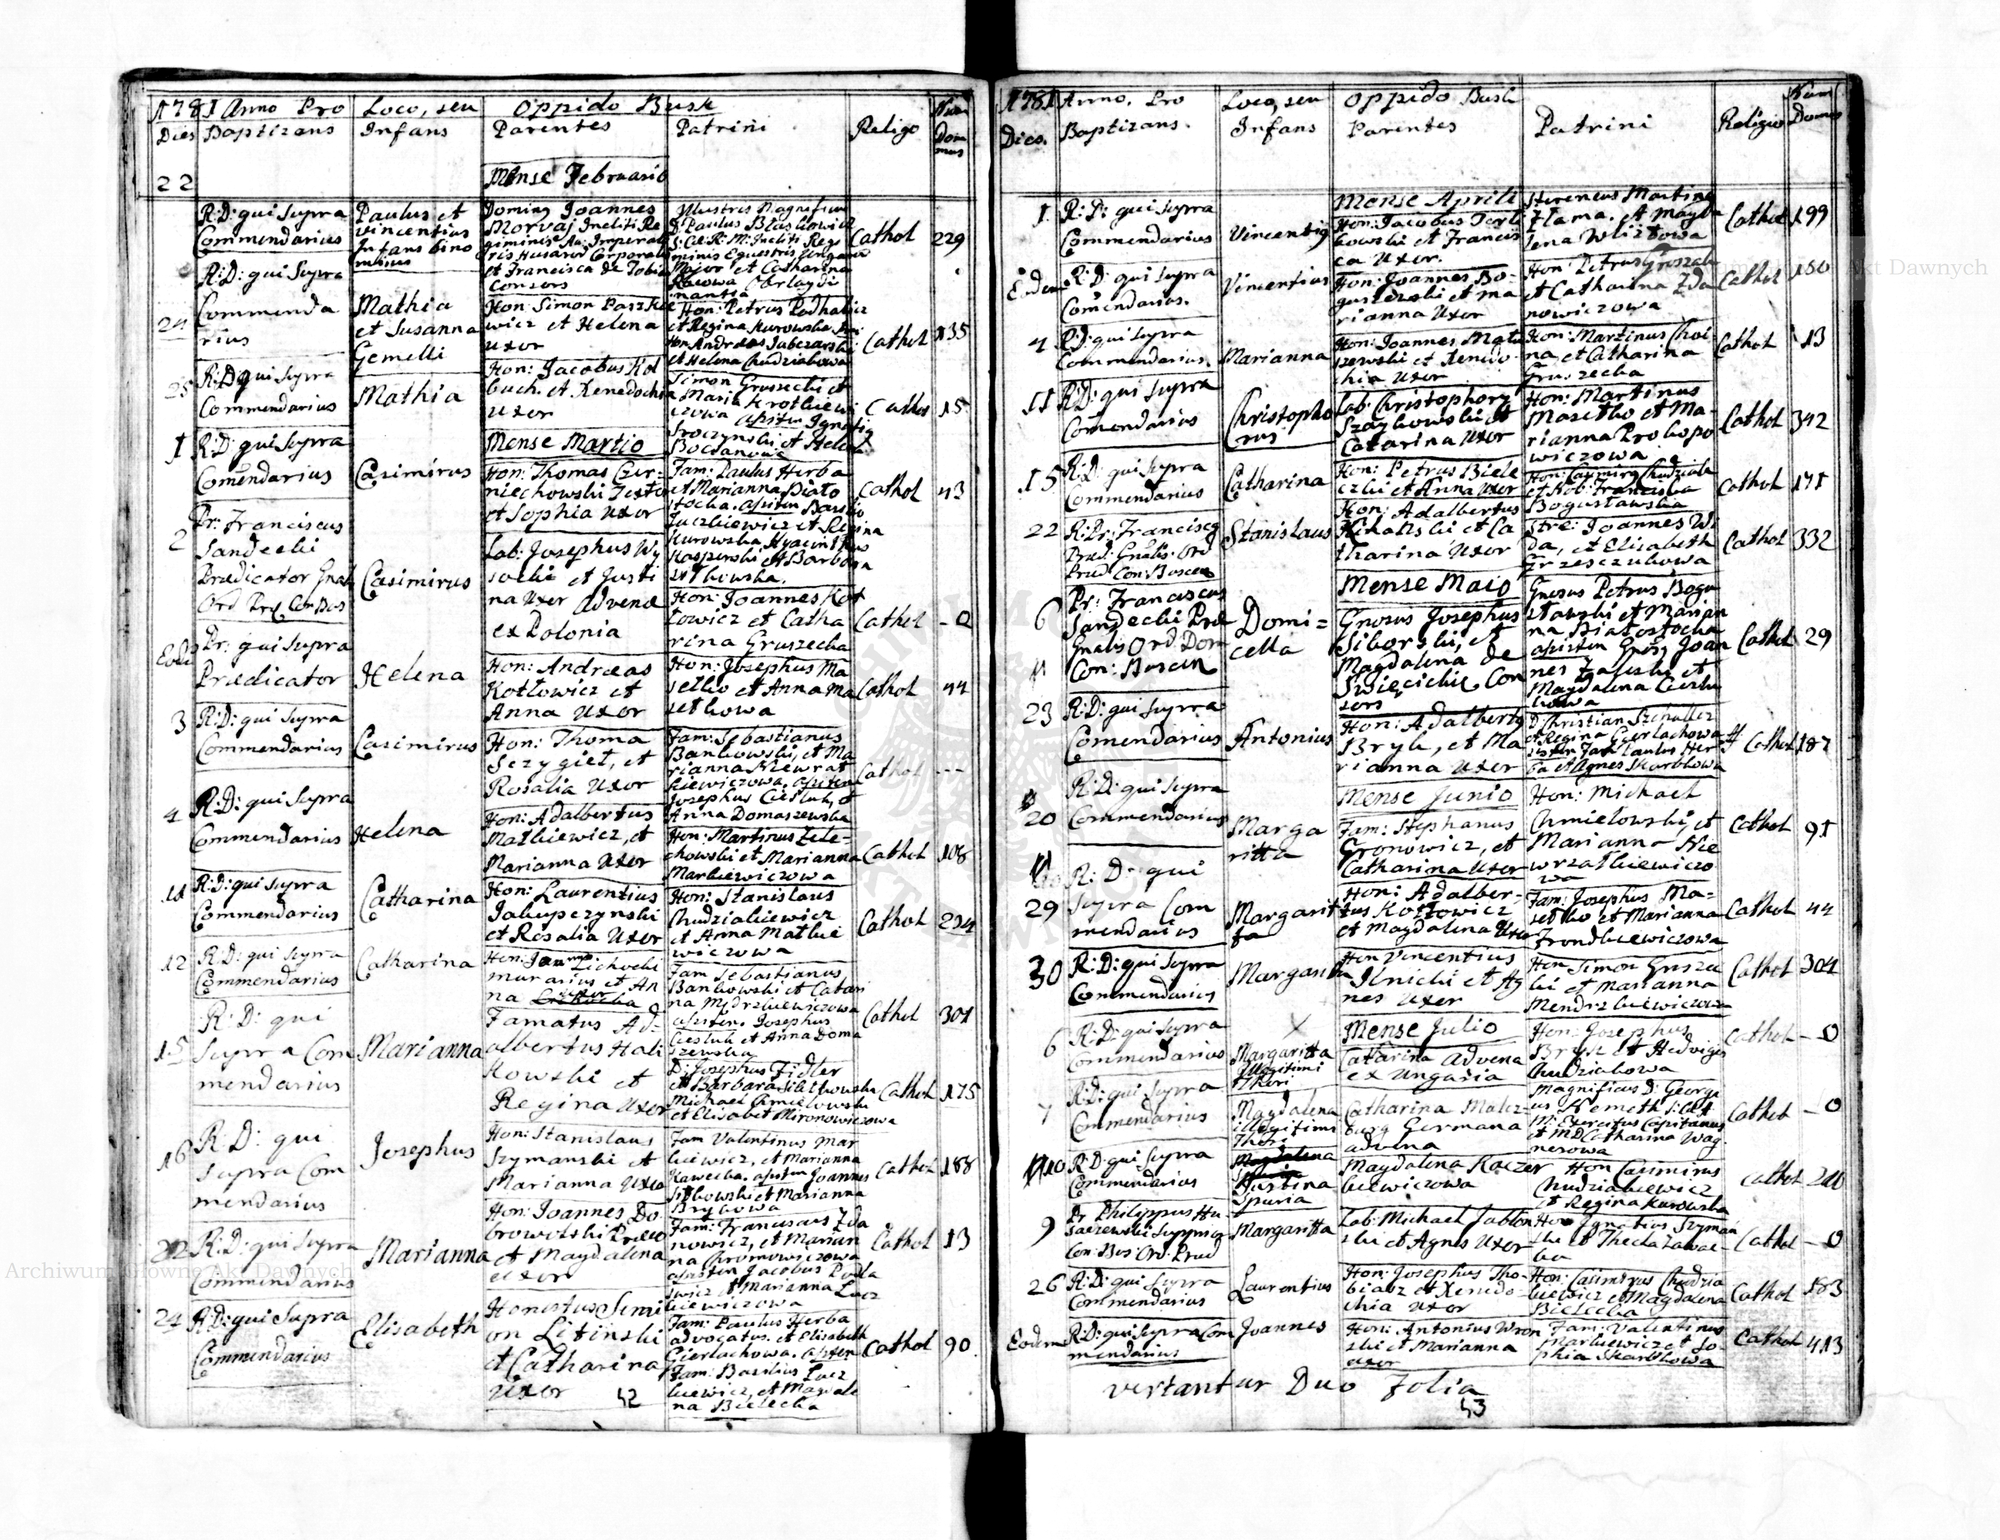 1781 Anno Pro Loco, seu Oppido Busk
Dies Baptizans Infans Parentes Patrini Religo Num Domus
22 Mense Februario
R: D: qui Supra
Commendarius
Paulus et
Vincentius
Infans bino
minius
Dominus Joannes
Morvaj Incliti Re
giminis
ris Husaror Corporalis
et Francisca de Tobias
Consors
Illustris Magnificus
D: Paulus
Major et Catharina
Cathol 229
24
R: D: qui Supra
Commenda
rius
Mathia
et Susanna
Gemelli
Hon: Simon Paszkie
wicz et Helena
Uxor
Hon: Petrus Podhalicz
et Regina Kurowska
Hon Andreas
et Helena Chudziakowa
Cathol 135
25
R: D qui Supra
Commendarius
Mathia
Hon: Jacobus Kol
buch. et Xenedochia
Uxor
Simon Gruszecki et
Maria Krotkiewi
czowa Assisten Ignatius
Sroczynski et Helena
Cathol 15
Mense Martio
1
R: D: qui Supra
Comendarius
Casimirus
Hon: Thomas Czer-
niechowski Textor
et Sophia Uxor
Fam: Paulus Herba
et Marianna Biało
stocka. Assisten Basilio
Juczkiewicz et Regina
Kurowska Hyacinthus
Kasperski et Barbara
Cathol 43
2
Pr: Franciscus
Sandecki
Prædicator Gnal
Ord Pred Con Bus
Casimirus
Lab: Josephus Wy
socki et Justi
na Uxor Advenæ
ex Polonia
Hon: Joannes Kot
łowicz et Catha
rina Gruszecka
Cathol - 0
Eode
Pr: qui Supra
Prædicator
Helena
Hon: Andreas
Kotłowicz et
Anna Uxor
Hon: Josephus Ma
setko et Anna Ma
setkowa
Cathol 44
3
R: D: qui Supra
Commendarius
Casimirus
Hon: Thoma
Sczygieł, et
Rosalia Uxor
Fam: Sebastianus
Bankowski, et Ma
rianna Niewrzat
kiewiczowa. Assisten
Josephus Ciesluk, et
Anna Domaszewska
Cathol ---
4
R: D: qui Supra
Commendarius
Helena
Hon: Adalbertus
Matkiewicz, et
Marianna Uxor
Hon: Martinus Zele-
chowski et Marianna
Markiewiczowa
Cathol 108
11
R: D: qui Supra
Commendarius
Catharina
Hon: Laurentius
Jakupczynski
et Rosalia Uxor
Hon: Stanislaus
Chudziakiewicz
et Anna Matkie
wiczowa
Cathol 234
12
R: D: qui Supra
Commendarius
Catharina
Hon: Joannes Lichocki
murarius et An
na Uxor
Fam Sebastianus
Bankowski et Catari
na Mędrzkiewiczowa
Assisten: Josephus
Ciesluk et Anna Doma
szewska
Cathol 301
15
R: D: qui
Supra Com
mendarius
Marianna
Famatus Ad-
albertus Hali
Kowski et
Regina Uxor
D: Josephus Fidler
et Barbara
Michael Chmielowski
et Elisabet Mironowiczowa
Cathol 175
16
R: D: qui
Supra Com
mendarius
Josephus
Hon: Stanislaus
Szymanski et
Marianna Uxor
Fam Valentinus Mar
kiewicz, et Marianna
Kawecka. Assisten Joannes
Sitkowski et Marianna
Brykowa
Cathol 188
22
R: D: qui Supra
Commendarius
Marianna
Hon: Joannes Do-
browolski Præco
et Magdalena
uxor
Fam: Franciscus Zda
nowicz, et Marian
na Chromowiczowa
Assisten Jacobus
et Marianna Lucz
kiewiczowa
Cathol 13
24
R: D: qui Supra
Commendarius
Elisabeth
Honestus Simi
on Litinski
et Catharina
Uxor
Fam: Paulus Herba
advocatus. et Elisabeth
Cierlachowa. Assisten
Fam: Basilius Lucz
kiewicz, et Maríale
na Bielecka
Cathol 90
52
1781 Anno. Pro Loco, seu Oppido Busk
Dies. Baptizans. Infans Parentes Patrini Religio Num Domus
Mense Aprili
1.
R: D: qui Supra
Commendarius
Vincentius
Hon: Jacobus Terli
kowski et Francis
ca Uxor.
Herencus Martinus
Zlama. et Magda
lena Wlizłowa
Cathol 199
Eodem
R: D: qui Supra
Comendarius.
Vincentius
Hon: Joannes Bo-
guszewski et Ma
rianna Uxor
Hon: Petrus Gruszecki
et Catharina Zda
nowiczowa
Cathol 150
4
R: D: qui Supra
Commendarius.
Marianna
Hon: Joannes Matu
szewski et Xenedo-
chia Uxor
Hon: Martinus Choi
na, et Catharina
Gruszecka
Cathol 13
11
R: D: qui Supra
Comendarius
Christopho
rus
Lab: Christophory
Szaykowski et
Catarina Uxor
Hon: Martinus
Masetko et Ma-
rianna Prokopo
wiczowa
Cathol 342
15
R: D: qui Supra
Commendarius
Catharina
Hon: Petrus Biele
czki et Anna Uxor
Hon: Casimirus Chudziak
et Francisca
Bogusławska
Cathol 171
22
R: Pr: Franciscus
Præd: Gnalis Ord
Præd Con: Buscen
Stanislaus
Hon: Adalbertus
Mihalski et Ca
tharina Uxor
Stre: Joannes Wi
da, et Elisabeth
Grzesczukowa
Cathol 332
Mense Maio
6
Pr: Franciscus
Sandecki Præd
Gnalis Ord Dom
Con: Buscen
Domi=
cella
Gnosus Josephus
Siborski, et
Magdalena de
Święcickie Con
sors
Gnosus Petrus Bogu
sławski et Marian
na Białostocka
assisten Gnosus Joan
nes Zaleski et
Magdalena Cieslu
kowa
Cathol 29
23
R: D: qui Supra
Comendarius
Antonius
Hon: Adalbertus
Bryk, et Ma
rianna Uxor
D: Christian Szchultcz
et Regina Gierlachowa
sisten Fam Paulus Her
ba et Agnes Skarbkowa
Cathol 187
Mense Junio
20
R: D: qui Supra
Commendarius
Marga
ritta
Fam: Stephanus
Gronowicz, et
Catharina Uxor
Hon: Michael
Chmielowski, et
Marianna Nie
wrzatkiewiczo
wa
Cathol 91
29
R: D: qui
Supra Com
mendarius
Margarit
ta
Hon: Adalber-
tus Kotłowicz
et Magdalena Uxor
Fam: Josephus Ma-
setko et Marianna
Frondkiewiczowa
Cathol 44
30
R: D: qui Supra
Commendarius
Margaritta
Hon Vincentius
Ilnicki et Ag
nes Uxor
Hon: Simon Grusze
cki et Marianna
Mendrzkiewiczowa
Cathol 304
Mense Julio
6
R: D: qui Supra
Commendarius
Margaritta
Illegitimi
Thori
Catarina Advena
ex Ungaria
Hon: Josephus
Brysz et Hedvigis
Chudziakowa
Cathol - 0
7
R: D: qui Supra
Commendarius
Magdalena
illegitimi
Thori
Catharina Malcz-
burg Germana
advena
Magnificus D: Georgi
us Nemeth
M: Exercitus Capitanus
et MD Catharina Wag
nerowa
Cathol - 0
10
R: D: qui Supra
Commendarius
Justina
Spuria
Magdalena Kaczor
kiewiczowa
Hon Casimirus
Chudziakiewicz
et Regina Kurowska
Cathol 240
9
Pr Philippus Hu
saczewski Suppriور
Con: Bos: Ord: Præd
Margaritta
Lab: Michael Jablon
ski et Agnes Uxor
Hon: Ignatius Szyman
ski et Thecla Zawac-
ka
Cathol - 0
26
R: D: qui Supra
Commendarius
Laurentius
Hon: Josephus Tho-
biasz et Xenedo-
chia Uxor
Hon: Casimirus Chudzia
kiewicz et Magdalena
Bielecka
Cathol 183
Eodem
R: D: qui Supra Com
mendarius
Joannes
Hon: Antonius Wron
ski et Marianna
uxor
Fam: Valentinus
Markiewicz et So-
phia Skarbkowa
Cathol 413
vertantur Duo Folia
53
Archiwum Główne Akt Dawnych